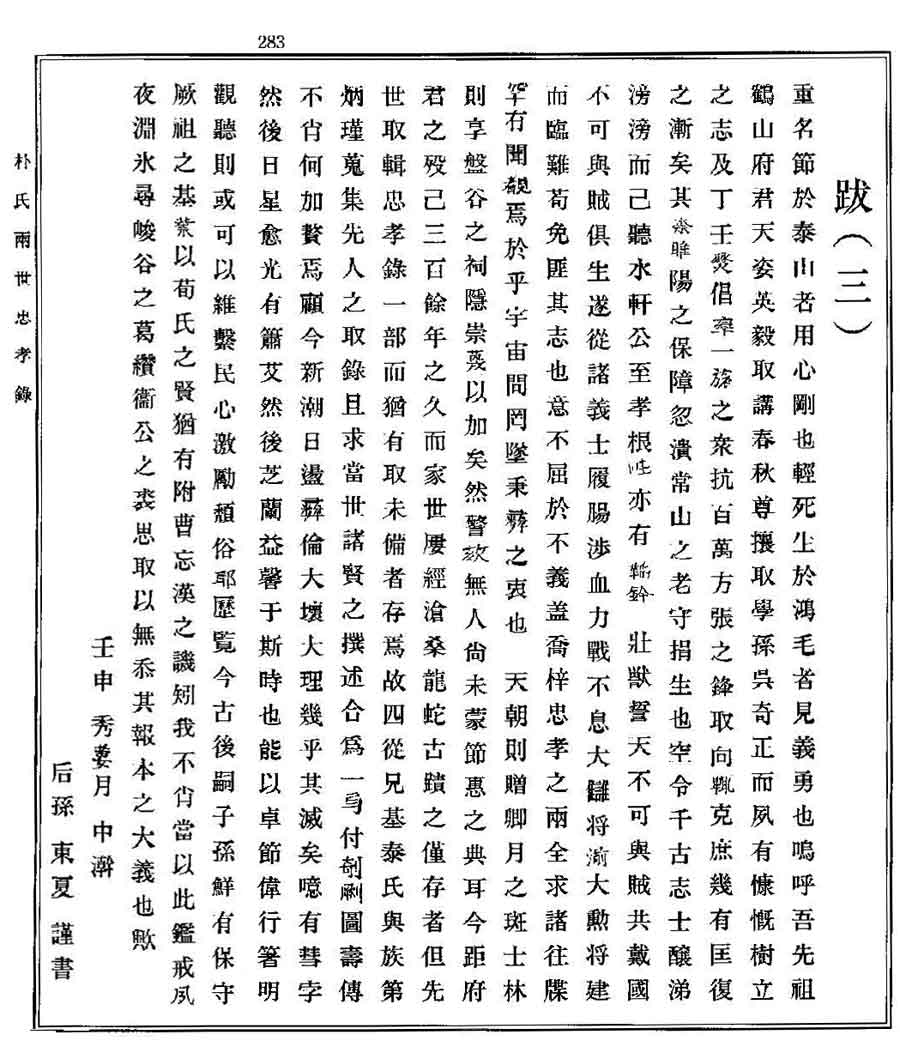 283
朴氏兩世忠孝錄
跋(三)
重名節於泰山者用心剛也輕死生於鴻毛者見義勇也嗚呼吾先祖
鶴山府君天姿英毅取講春秋尊攘取學孫吳奇正而夙有慷慨樹立
之志及丁壬燹倡率一旅之衆抗百萬方張之鋒取向輒克庶幾有匡復
之漸矣其柰睢陽之保障忽潰常山之老守捐生也空令千古志士釀涕
滂滂而已聽水軒公至孝根性亦有韜鈐 壯猷誓天不可與賊共戴國
不可與賊俱生遂從諸義士履腸涉血力戰不息大讎将渝大勳将建
而臨難苟免匪其志也意不屈於不義盖喬梓忠孝之兩全求諸往牒
罕有聞覩焉於乎宇宙間罔墜秉彛之衷也 天朝則贈卿月之班士林
則享盤谷之祠隱崇蔑以加矣然警欬無人尙未蒙節惠之典耳今距府
君之歿已三百餘年之久而家世屢經滄桑龍蛇古蹟之僅存者但先
世取輯忠孝錄一部而猶有取未備者存焉故四從兄基泰氏與族第
炳瑾蒐集先人之取錄且求當世諸賢之撰述合爲一写付剞劂圖壽傳
不肖何加贅焉顧今新潮日盪彛倫大壞大理幾乎其滅矣噫有彗孛
然後日星愈光有簫艾然後芝蘭益馨于斯時也能以卓節偉行箸明
觀聽則或可以維繫民心激勵頹俗耶歷覧今古後嗣子孫鮮有保守
厥祖之基業以荀氏之賢猶有附曹忘漢之譏矧我不肖當以此鑑戒夙
夜淵氷尋峻谷之葛纘衞公之裘思取以無忝其報本之大義也歟
壬申 秀葽月 中澣
后孫 東夏 謹書